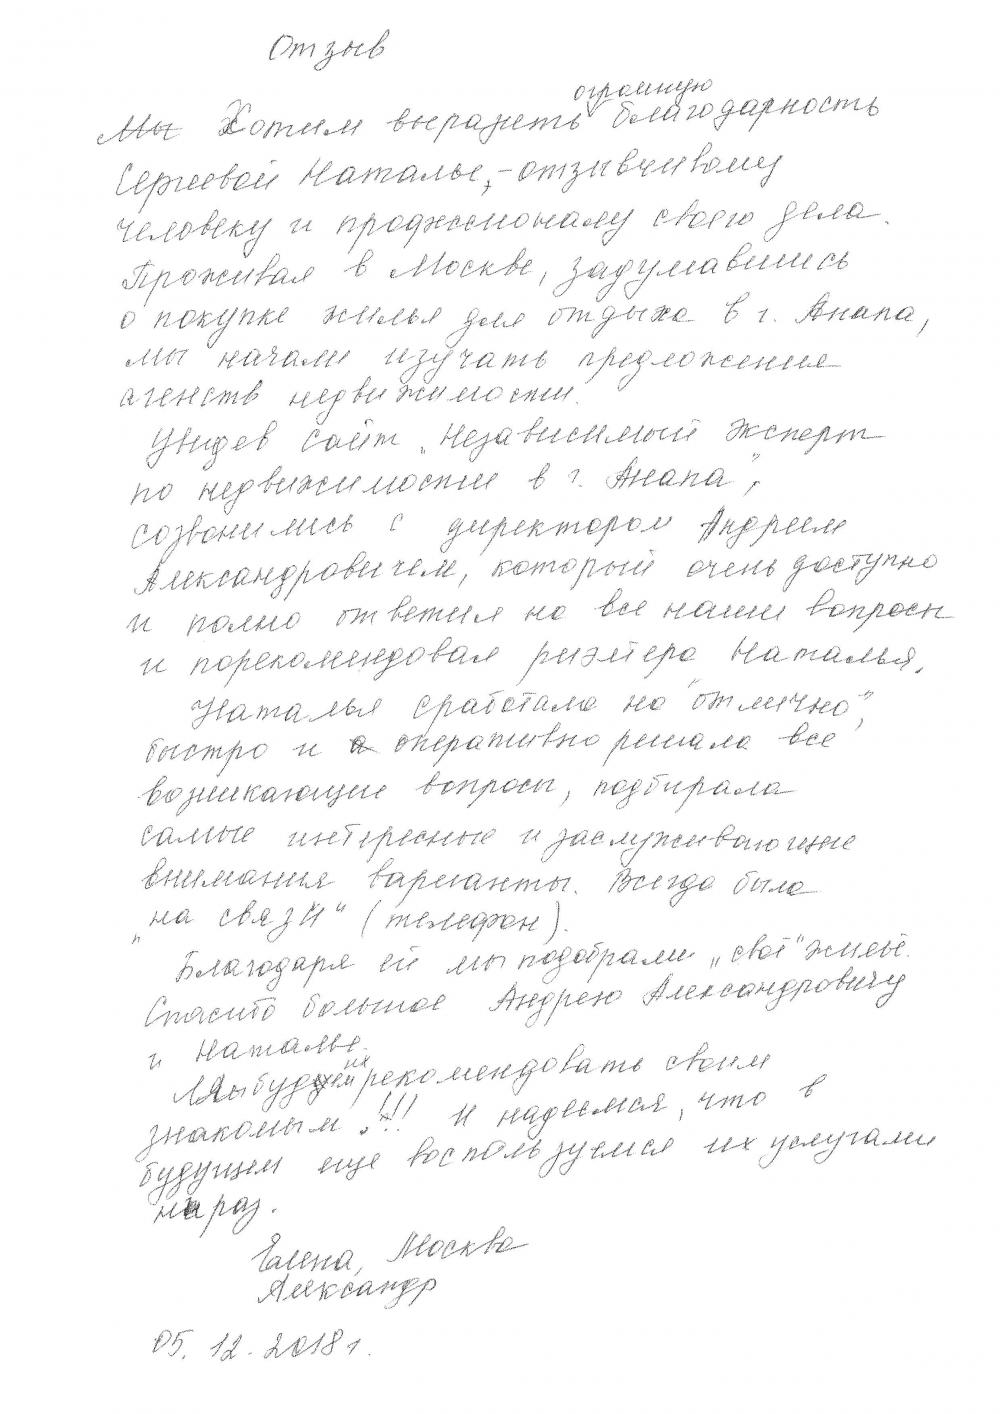 Отзыв
огромную
Мы Хотим выразить благодарность
Сергеевой Наталье, - отзывчивому
человеку и профессионалу своего дела.
Проживая в Москве, задумавшись
о покупке жилья для отдыха в г. Анапа,
мы начали изучать предложения
агенств недвижимости.
Увидев сайт „Независимый эксперт
по недвижимости в г. Анапа",
созвонились с директором Андреем
Александровичем, который очень доступно
и полно ответил на все наши вопросы
и порекомендовал риэлтера Наталья.
Наталья сработала на "отлично",
быстро и оперативно решала все
возникающие вопросы, подбирала
самые интересные и заслуживающие
внимания варианты. Всегда была
„на связи" (телефон).
Благодаря ей мы подобрали „своё" жильё.
Спасибо большое Андрею Александровичу
и Наталье.
их
Мы будем рекомендовать своим
знакомым!!! И надеемся, что в
будущем еще воспользуемся их услугами
не раз.
Елена, Москва
Александр
05.12.2018г.